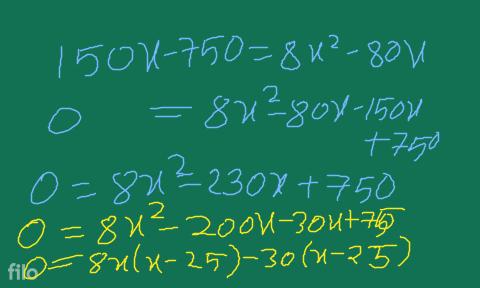 150x-750=8x²-80x
0 = 8x²-80x-150x
+750
0=8x²-230x+750
0=8x²-200x-30x+75
0=8x(x-25)-30(x-25)
filo